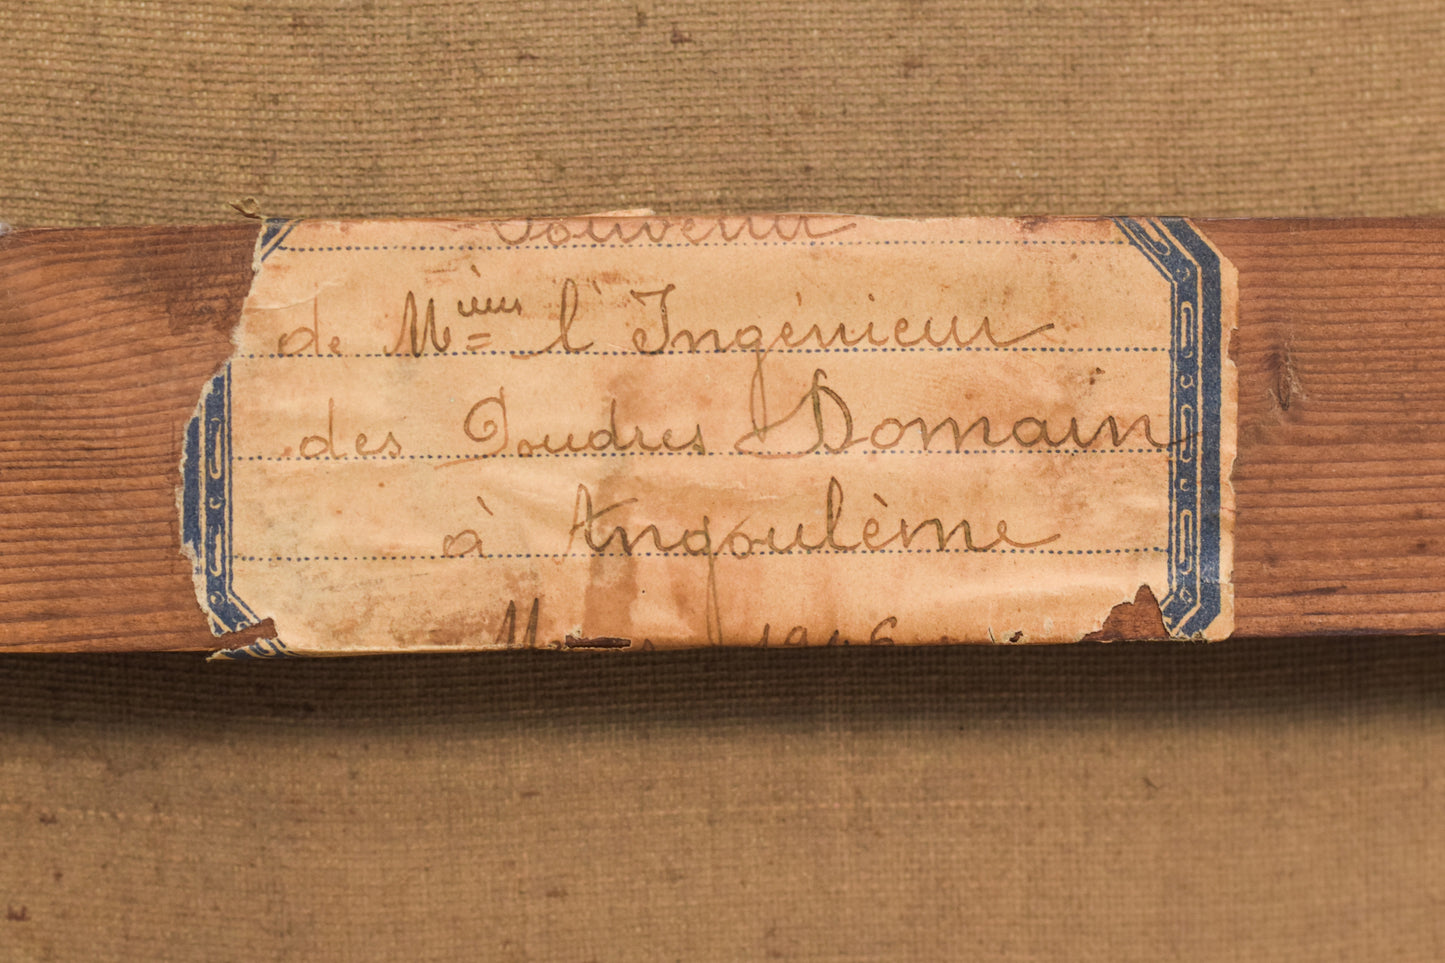 Souvenir
de M l'Ingénieur
des Poudres Domain
à Angoulême
1946